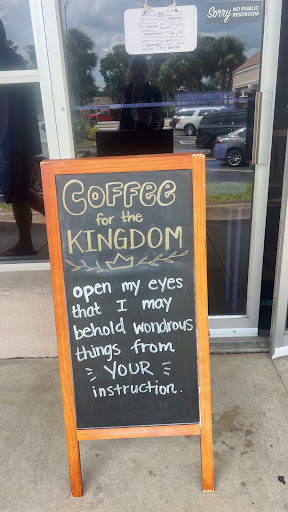 Sorry NO PUBLIC
RESTROOM
COFFEE
for the
KINGDOM
open my eyes
that I may
behold wondrous
things from
YOUR
instruction.